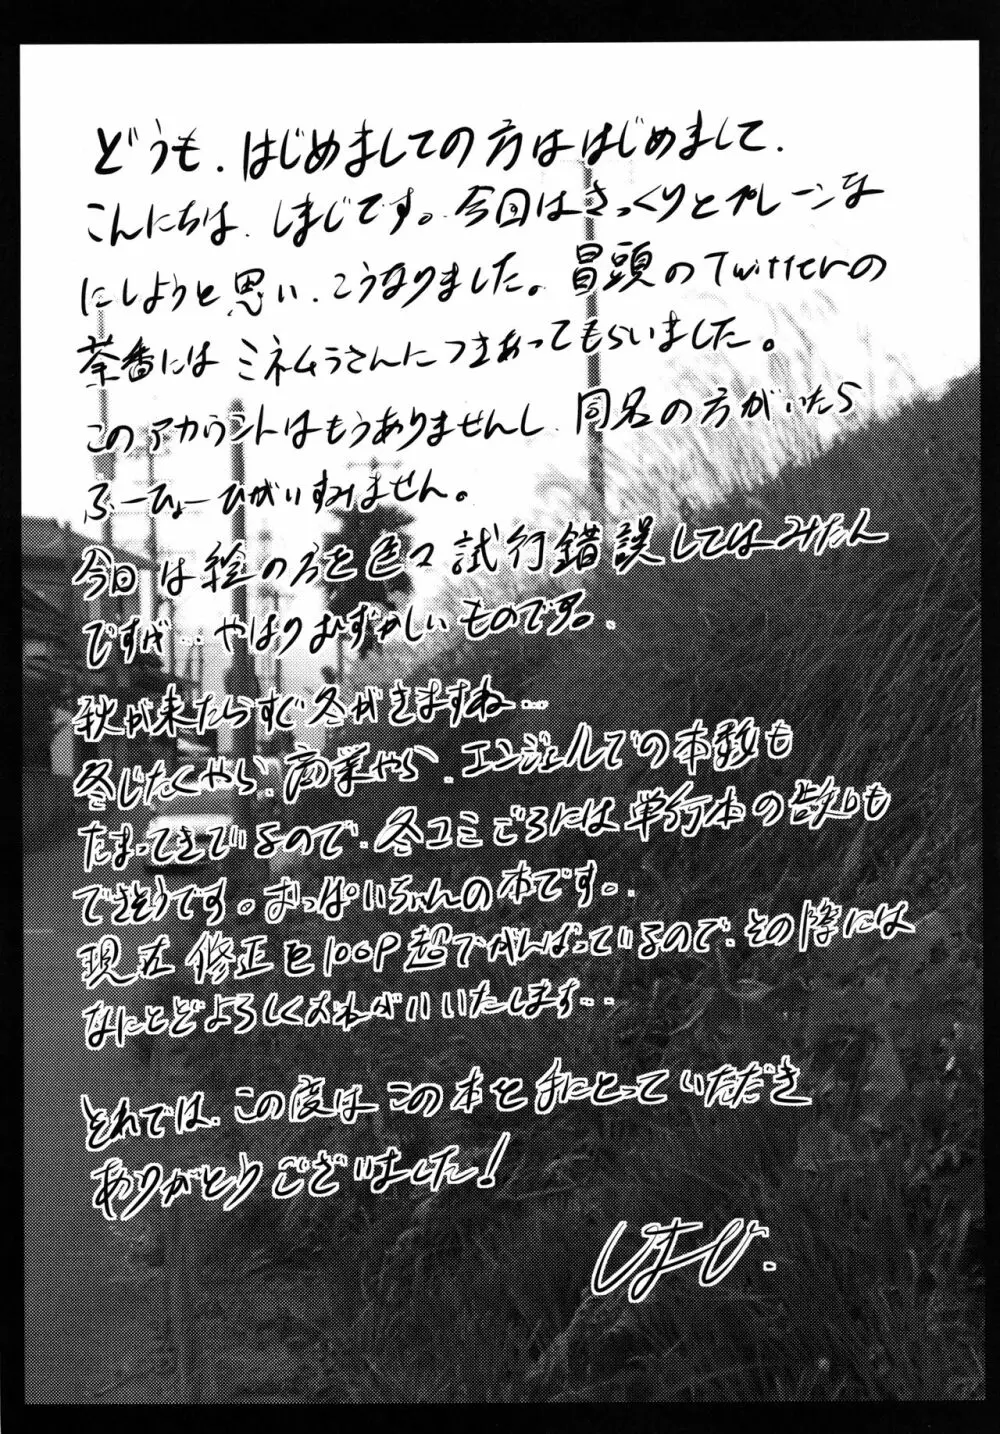 どうも、はじめましての方ははじめまして、
こんにちは、しまじです。今回はさっくりとプレーンな
にしようと思い、こうなりました。冒頭のTwitterの
茶番には ミネムラさんにつきあってもらいました。
このアカウントはもうありませんし、同名の方がいたら
ふーひょーひがいすみません。
今回は絵の方を色々試行錯誤してはみたん
ですが… やはりむずかしいものです。
秋が来たらすぐ冬がきますね…
冬じたくやら、商業やら、エンジェルでの本数も
たまってきているので、冬コミごろには単行本の告知も
できそうです。おっぱいちゃんの本です。
現在 修正を100P超でがんばっているので、その際には
なにとぞよろしくおねがいいたします…
それでは、この度はこの本を手にとっていただき
ありがとうございました！
しまじ.